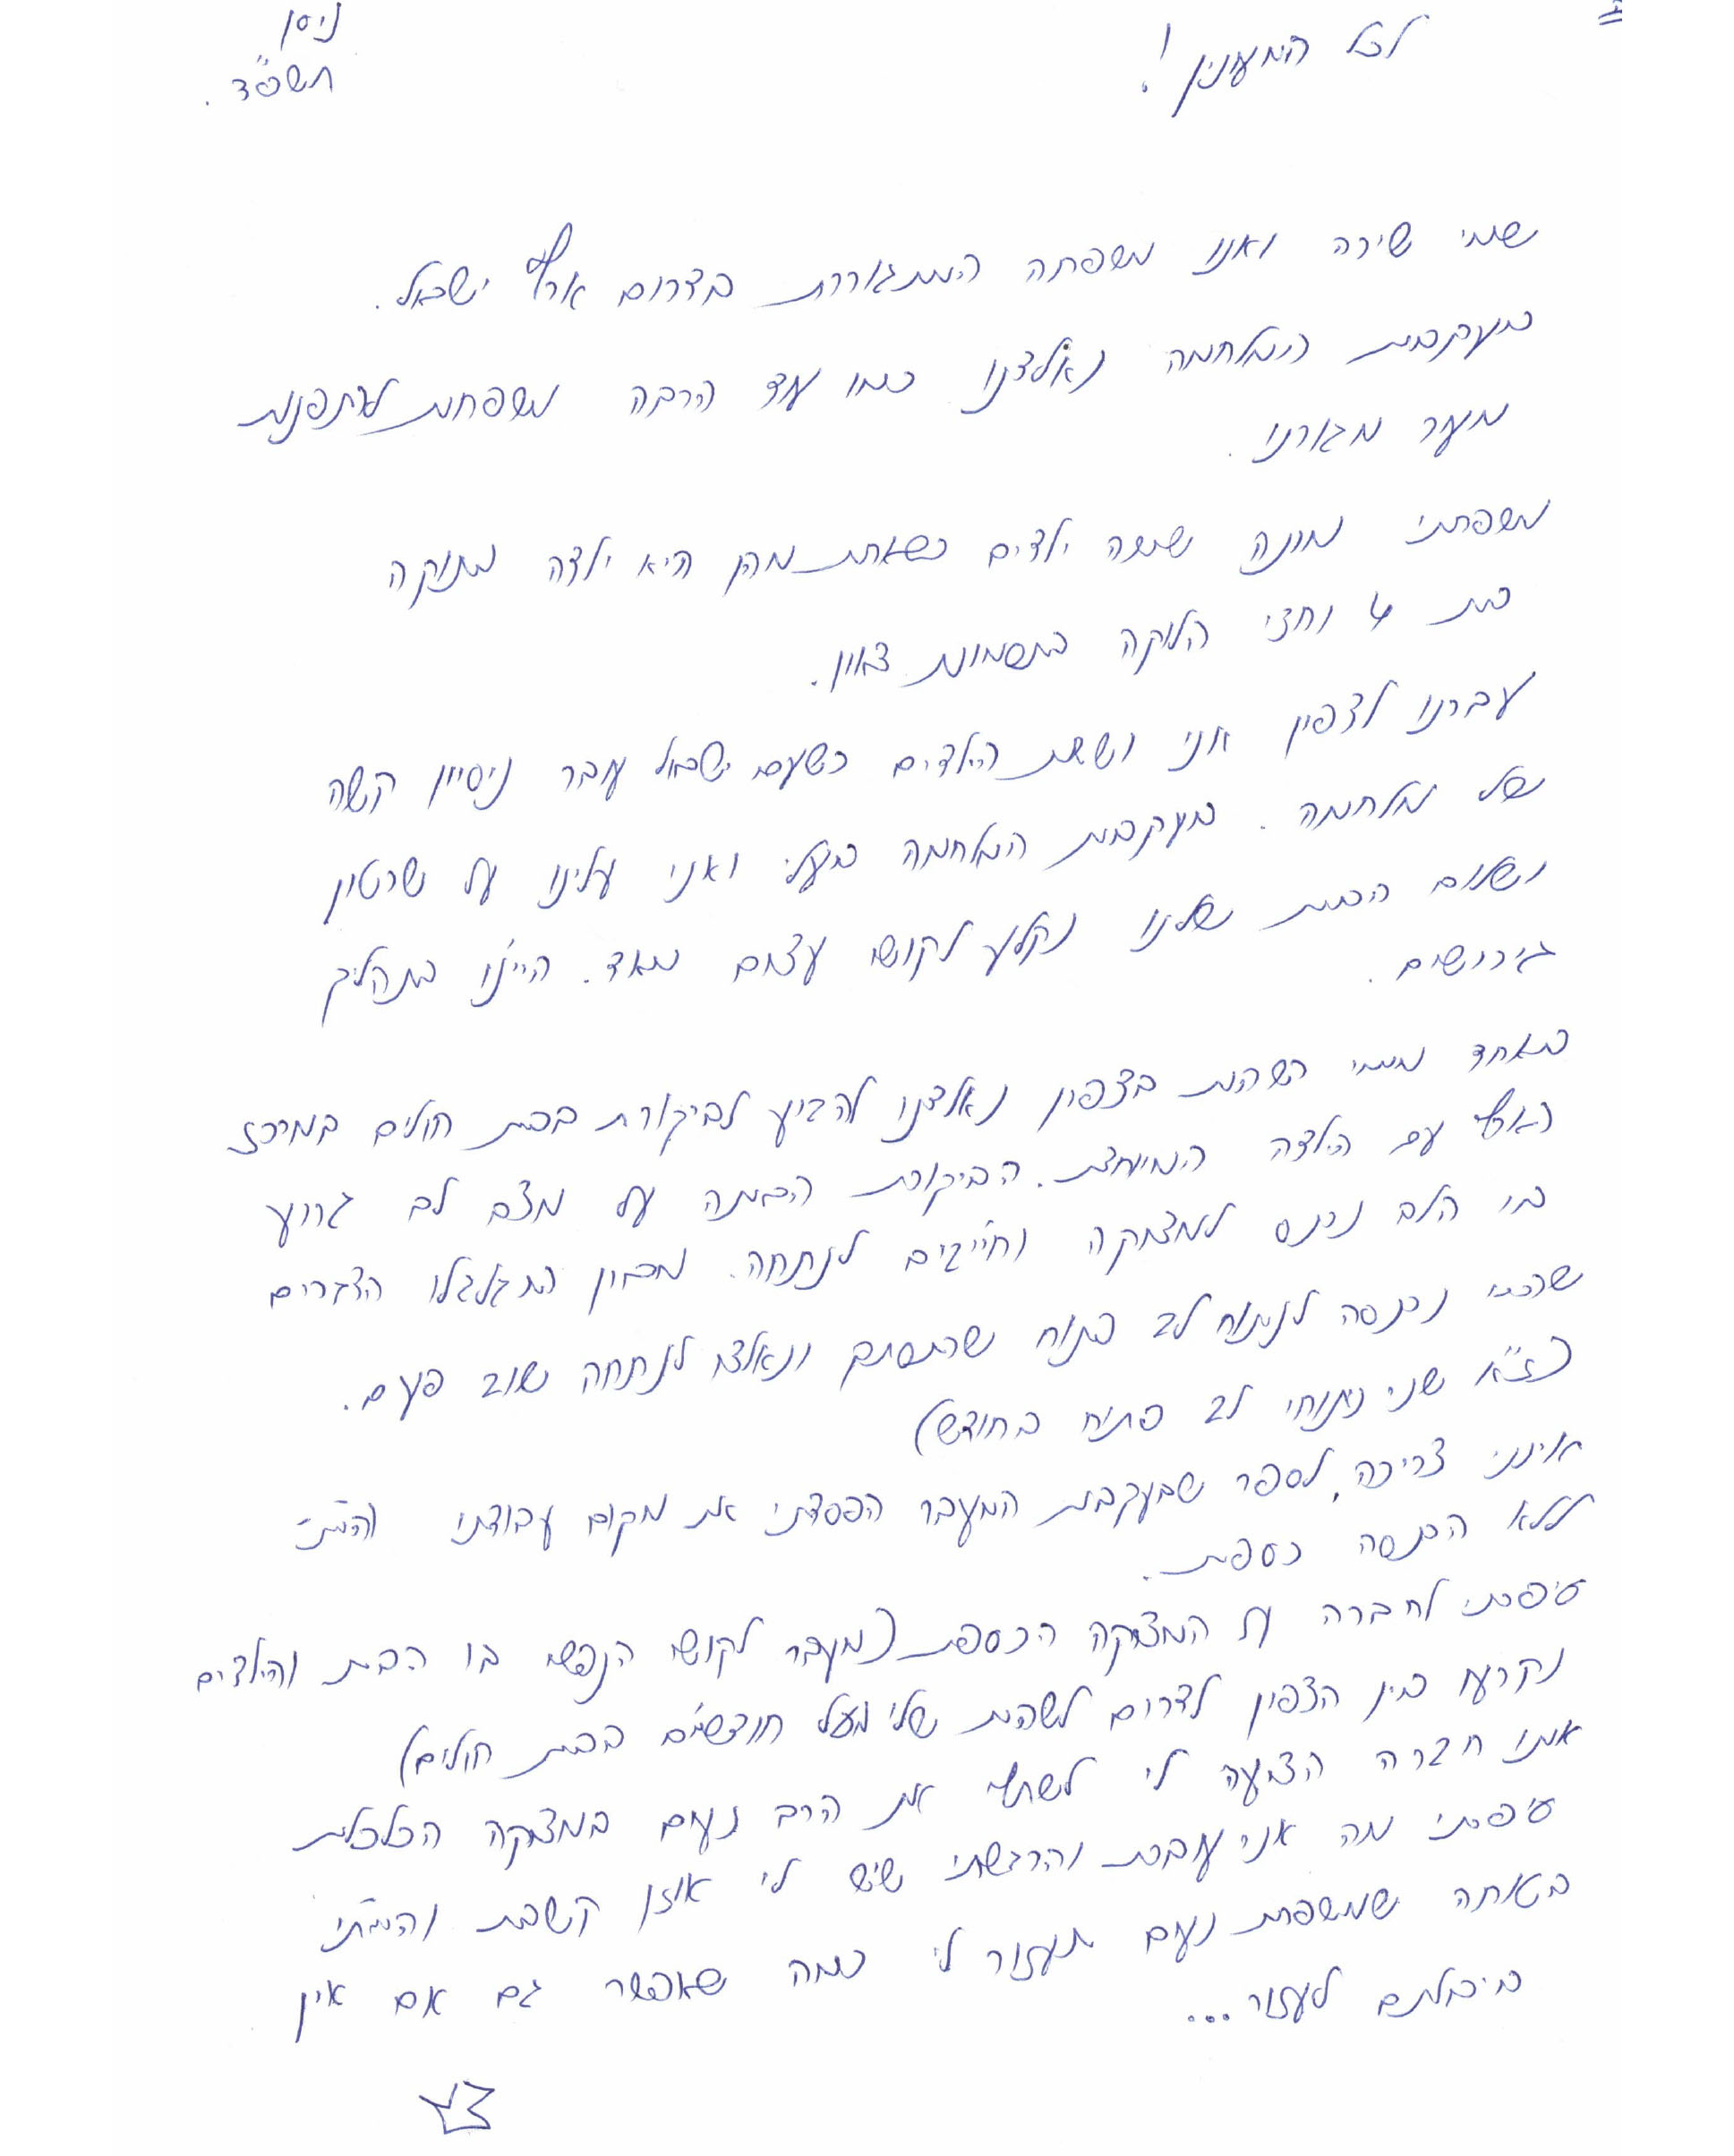 ניסן
תשפ"ד.
לכל המעונין!
שמי שירה ואנו משפחה המתגוררת בדרום ארץ ישראל.
בעקבות המלחמה נאלצנו כמו עוד הרבה משפחות להתפנות
מעיר מגורנו.
משפחתי מונה ששה ילדים כשאחת מהן היא ילדה מתוקה
בת 4 וחצי הלוקה בתסמונת דאון.
עברנו לצפון אני וששת הילדים כשעם ישראל עובר ניסיון קשה
של מלחמה. בעקבות המלחמה בעלי ואני עלינו על שרטון
ושלום הבית שלנו נקלע לקושי עצום מאוד. היינו בתהליך
גירושים.
באחד מימי השהות בצפון נאלצנו להגיע לביקורת בבית חולים במרכז
הארץ עם הילדה המיוחדת. הביקורת הראתה על מצב לב גרוע
בו הלב נכנס למצוקה וחייבים לנתחה. מכאן התגלגלו הדברים
שהבת נכנסה לניתוח לב פתוח שהסתבך ונאלצו לנתחה שוב פעם.
(ז"א שני ניתוחי לב פתוח בחודש)
אינני צריכה לספר שבעקבות המעבר הפסדתי את מקום עבודתי והייתי
ללא הכנסה כספית.
סיפרתי לחברה על המצוקה הכספית (מעבר לקושי הנפשי בו הבית והילדים
נקרעו בין הצפון לדרום לשהות שלי מעל חודשיים בבית חולים)
אותו חברה הציעה לי לשתף את הרב נעים במצוקה הכלכלית
סיפרתי מה אני עוברת והרגשתי שיש לי אוזן קשבת והייתי
בטוחה שמשפחת נעים תעזור לי כמה שאפשר גם אם אין
ביכולתם לעזור...